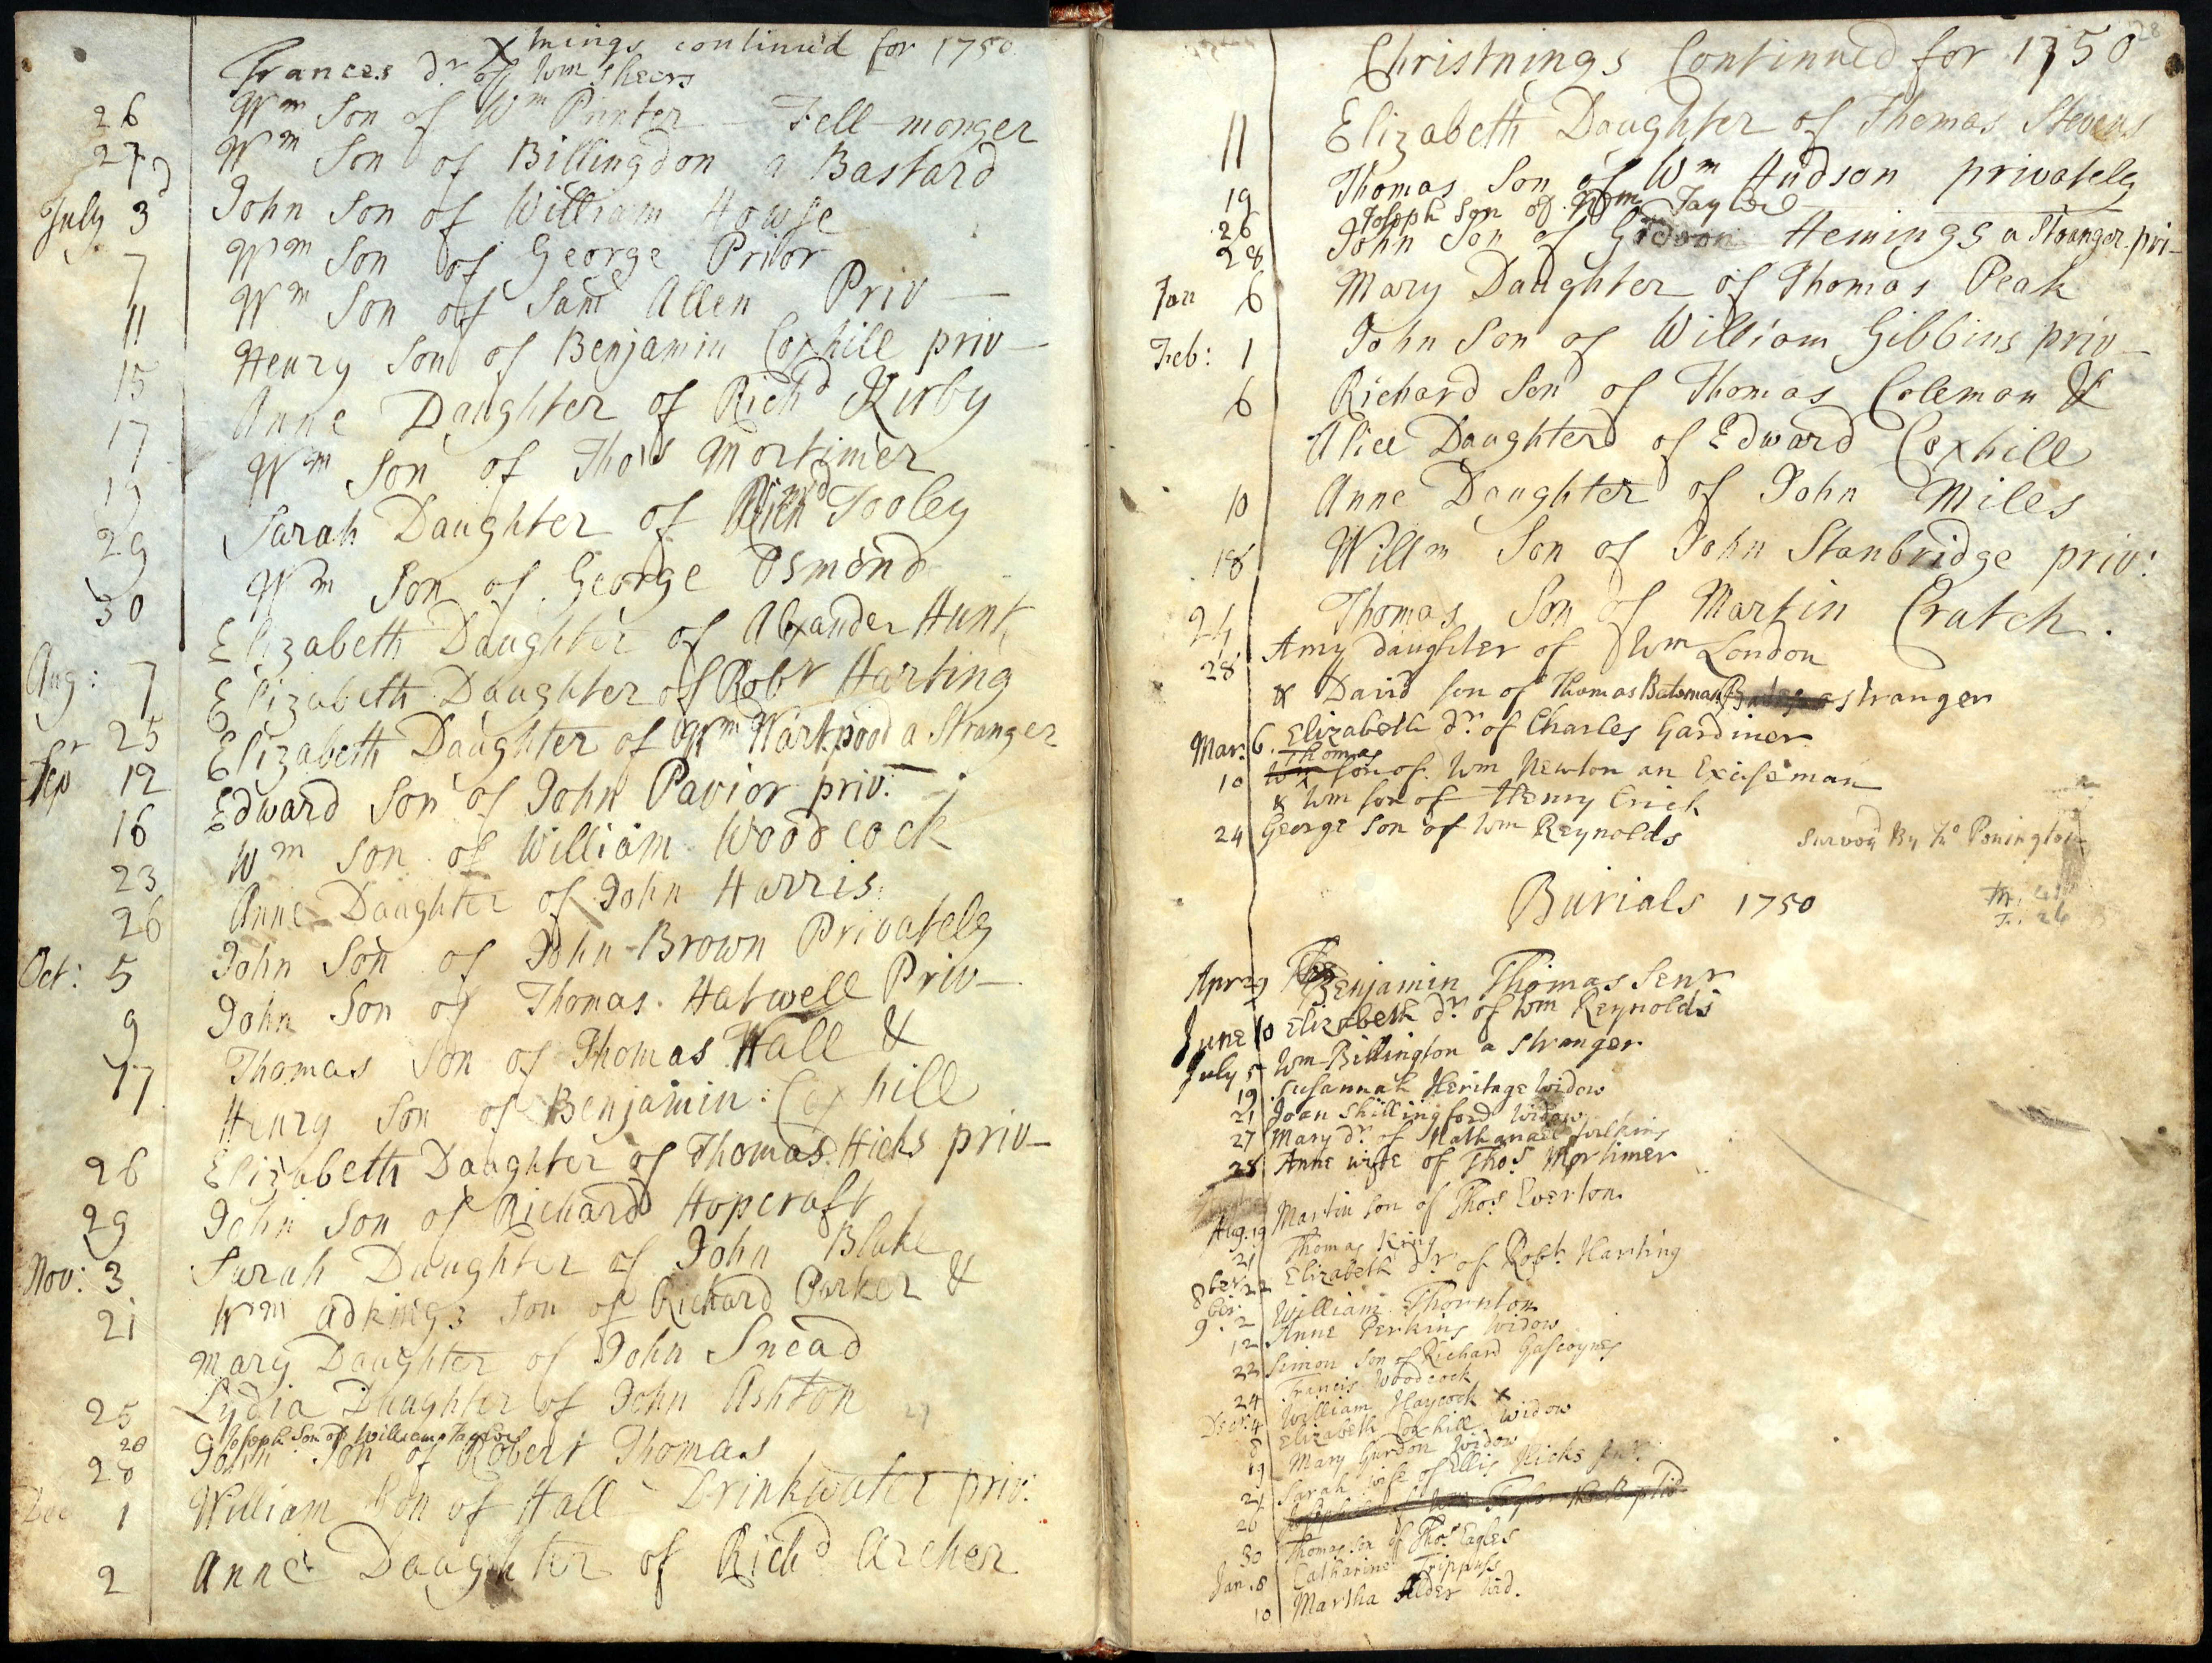 Xtnings continu'd for 1750
Frances dr. of Wm Sheers
26 Wm Son of Wm Printer Fell-monger
27 Wm Son of Billingdon a Bastard
July 3d John Son of William Howse
7 Wm Son of George Prior
11 Wm Son of Saml Allen Priv
15 Henry Son of Benjamin Coxhill priv
17 Anne Daughter of Richd Kirby
19 Wm Son of Thos Mortimer
29 Sarah Daughter of Richd Tooley
30 Wm Son of George Osmond
Aug: 7 Elizabeth Daughter of Alexander Hunt
25 Elizabeth Daughter of Robt Harting
Sepr 12 Elizabeth Daughter of Wm a Stranger
16 Edward Son of John Pavior priv:
23 Wm Son of William Woodcock
26 Anne Daughter of John Harris
Oct: 5 John Son of John Brown Privately
9 John Son of Thomas Hatwell Priv
17 Thomas Son of Thomas Hall &
Henry Son of Benjamin: Coxhill
26 Elizabeth Daughter of Thomas Hicks priv
29 John Son of Richard Hopcraft
Nov: 3 Sarah Daughter of John Blake
21 Wm Adkings Son of Richard Parker &
Mary Daughter of John Snead
25 Lydia Daughter of John Ashton
28 Joseph Son of William Taylor
28 John Son of Robert Thomas
Dec 1 William Son of Hall Drinkwater priv:
2 Anne Daughter of Richd Archer
28
Christnings Continued for 1750
11 Elizabeth Daughter of Thomas Stevens
19 Thomas Son of Wm Hudson privately
26 Joseph Son of Wm Taylor
28 John Son of Hemings a Stranger pri-
Jan 6 Mary Daughter of Thomas Peak
Feb: 1 John Son of William Gibbins priv
6 Richard Son of Thomas Coleman &
Alice Daughter of Edward Coxhill
10 Anne Daughter of John Miles
18 Willm Son of John Stanbridge priv:
24 Thomas Son of Martin Cratch.
28 Amy daughter of Wm London
& David son of Thomas Bateman a stranger
Mar. 6. Elizabeth dr. of Charles Gardiner
Thomas
10 Wm son of Wm Newton an Exciseman
& Wm son of Henry Crick
24 George Son of Wm Reynolds
Burials 1750
Apr 29 Benjamin Thomas Senr
June 10 Elizabeth dr. of Wm Reynolds
July 5 Wm Billington a Stranger
19 Susannah Heritage Widow
21 Joan Shillingford Widow
27 Mary dr. of Nathanael Julkins
28 Anne wife of Thos Mortimer
Aug. 19 Martin son of Thos Everton
21 Thomas King
8ber 22 Elizabeth dr of Robt. Harting
9ber. 2 William Thornton
12 Anne Perkins Widow
22 Simon Son of Richard Gascoynes
24 Francis Woodcock
Decr. 4 William Haycock X
8 Elizabeth Coxhill Widow
19 Mary Gurdon Widow
21 Sarah wife of Ellis Hicks Junr.
26
30 Thomas Son of Thos Eagles
Jan. 8 Catharine Trippass
10 Martha Alder Wid.